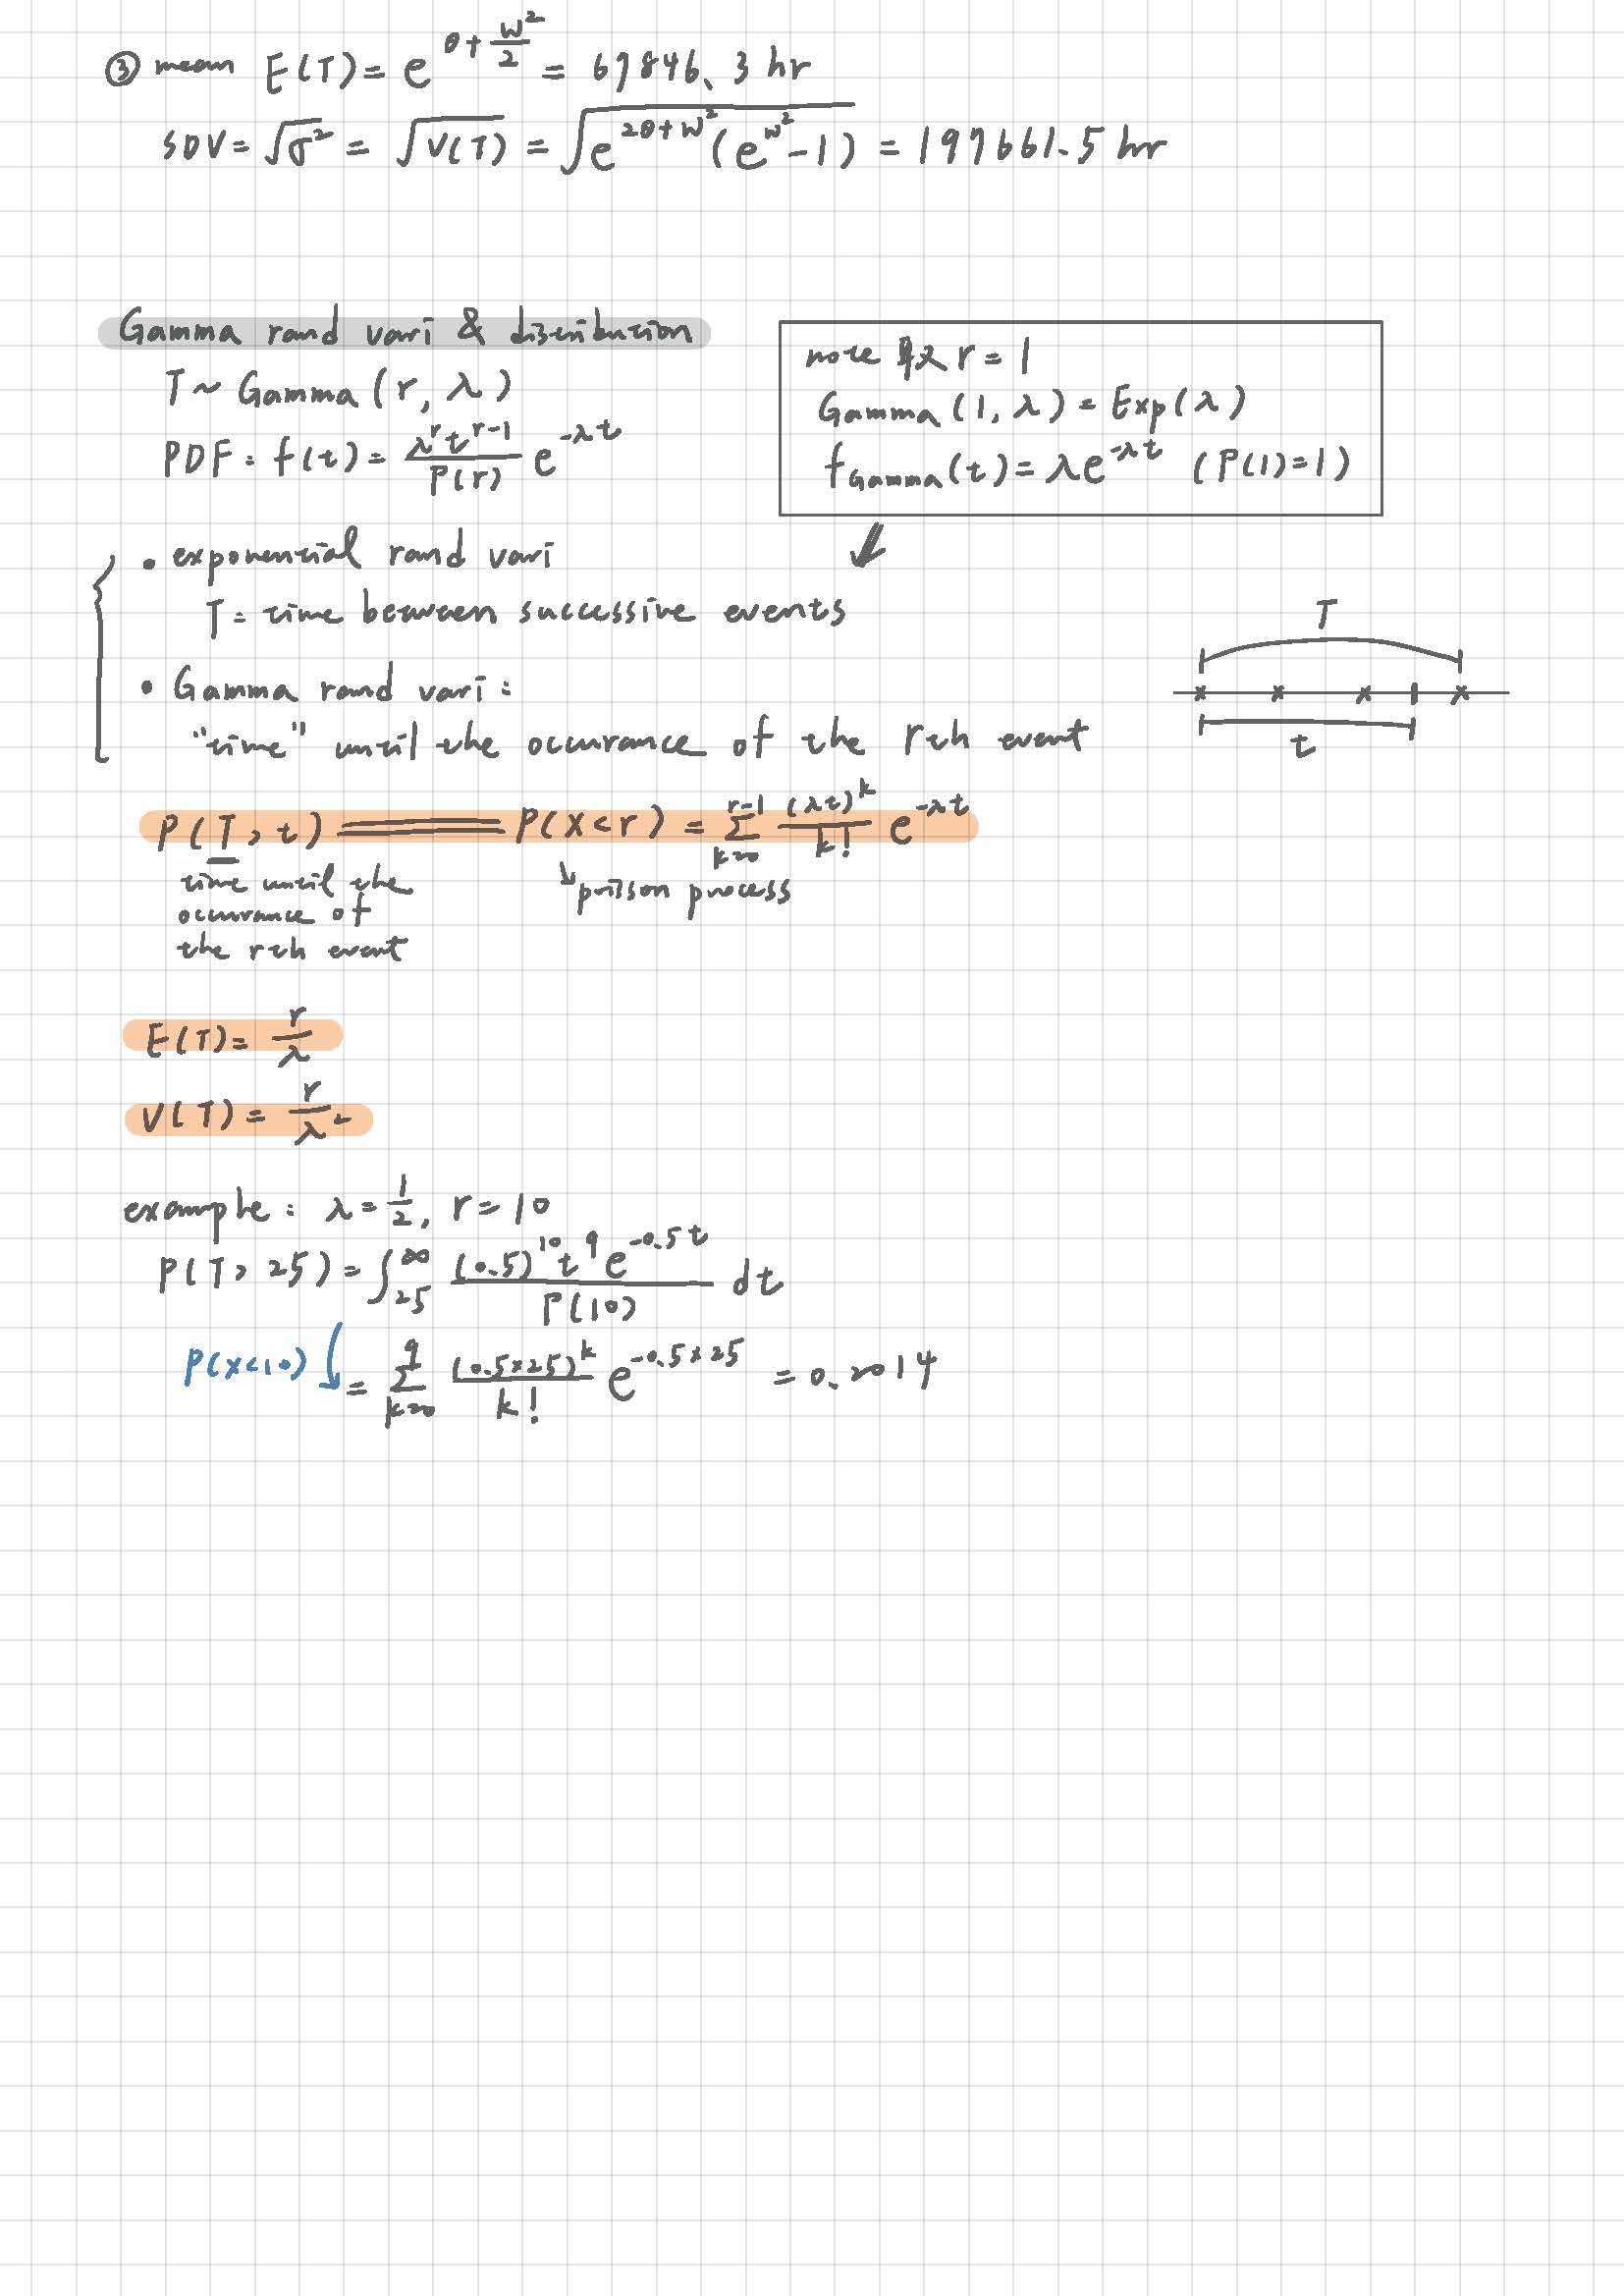 ③ mean E(T) = e^{θ + w²/2} = 67846.3 hr
SDV = √σ² = √V(T) = √(e^{2θ+w²}(e^{w²}-1)) = 197661.5 hr
Gamma rand vari & distribution
T ~ Gamma(r, λ)
PDF: f(t) = λ^r t^{r-1} / Γ(r) e^{-λt}
note 取 r = 1
Gamma(1, λ) = Exp(λ)
f_{Gamma}(t) = λe^{-λt} (Γ(1)=1)
• exponential rand vari
T = time between successive events
• Gamma rand vari:
"time" until the occurance of the rth event
T
t
P(T > t) = P(X < r) = Σ_{k=0}^{r-1} (λt)^k / k! e^{-λt}
time until the
occurance of
the rth event
poison process
E(T) = r/λ
V(T) = r/λ²
example: λ = 1/2, r = 10
P(T > 25) = ∫_{25}^{∞} (0.5)^{10} t^9 e^{-0.5t} / Γ(10) dt
P(X<10) = Σ_{k=0}^{9} (0.5×25)^k / k! e^{-0.5×25} = 0.2014